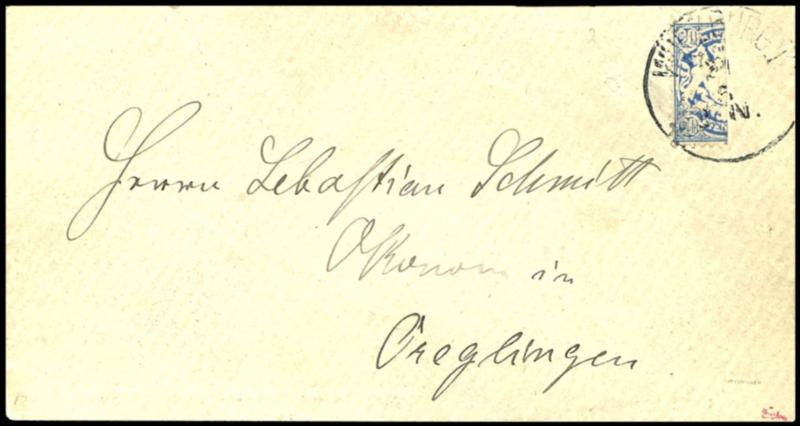 20
20
N.
Herrn Sebastian Schmitt
Okonom in
Creglingen